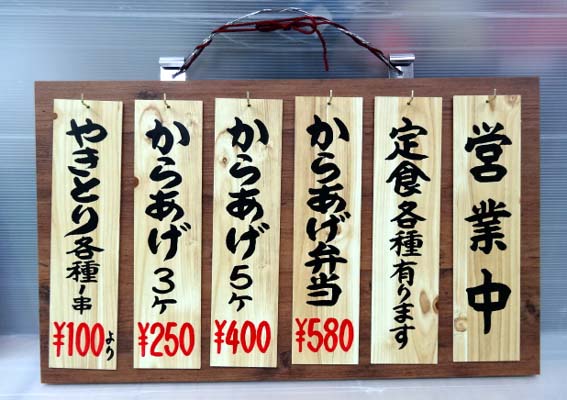 営業中
定食各種有ります
からあげ弁当
¥580
からあげ5ヶ
¥400
からあげ3ヶ
¥250
やきとり各種1串
¥100より